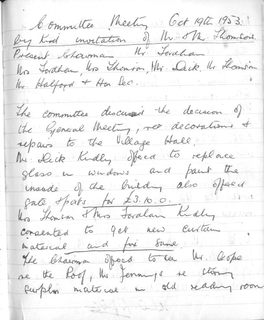 Committee Meeting Oct 19th 1953
by kind invitation of Mr & Mrs Thomson.
Present Chairman Mr Fordham
Mrs Fordham, Mrs Thomson, Mr Dick, Mr Thomson
Mr Halford & Hon Sec.
The committee discussed the decision of
the General Meeting, re decorations &
repairs to the Village Hall,
Mr Dick Kindly offered to replace
glass in windows and paint the
inside of the building also offered
gate & posts for £3.10.0.
Mrs Thomson & Mrs Fordham Kindly
consented to get new curtain
material and fix same
The Chairman offered to see Mr Cope
re the Roof, Mr Jennings re storing
surplus material in old reading room